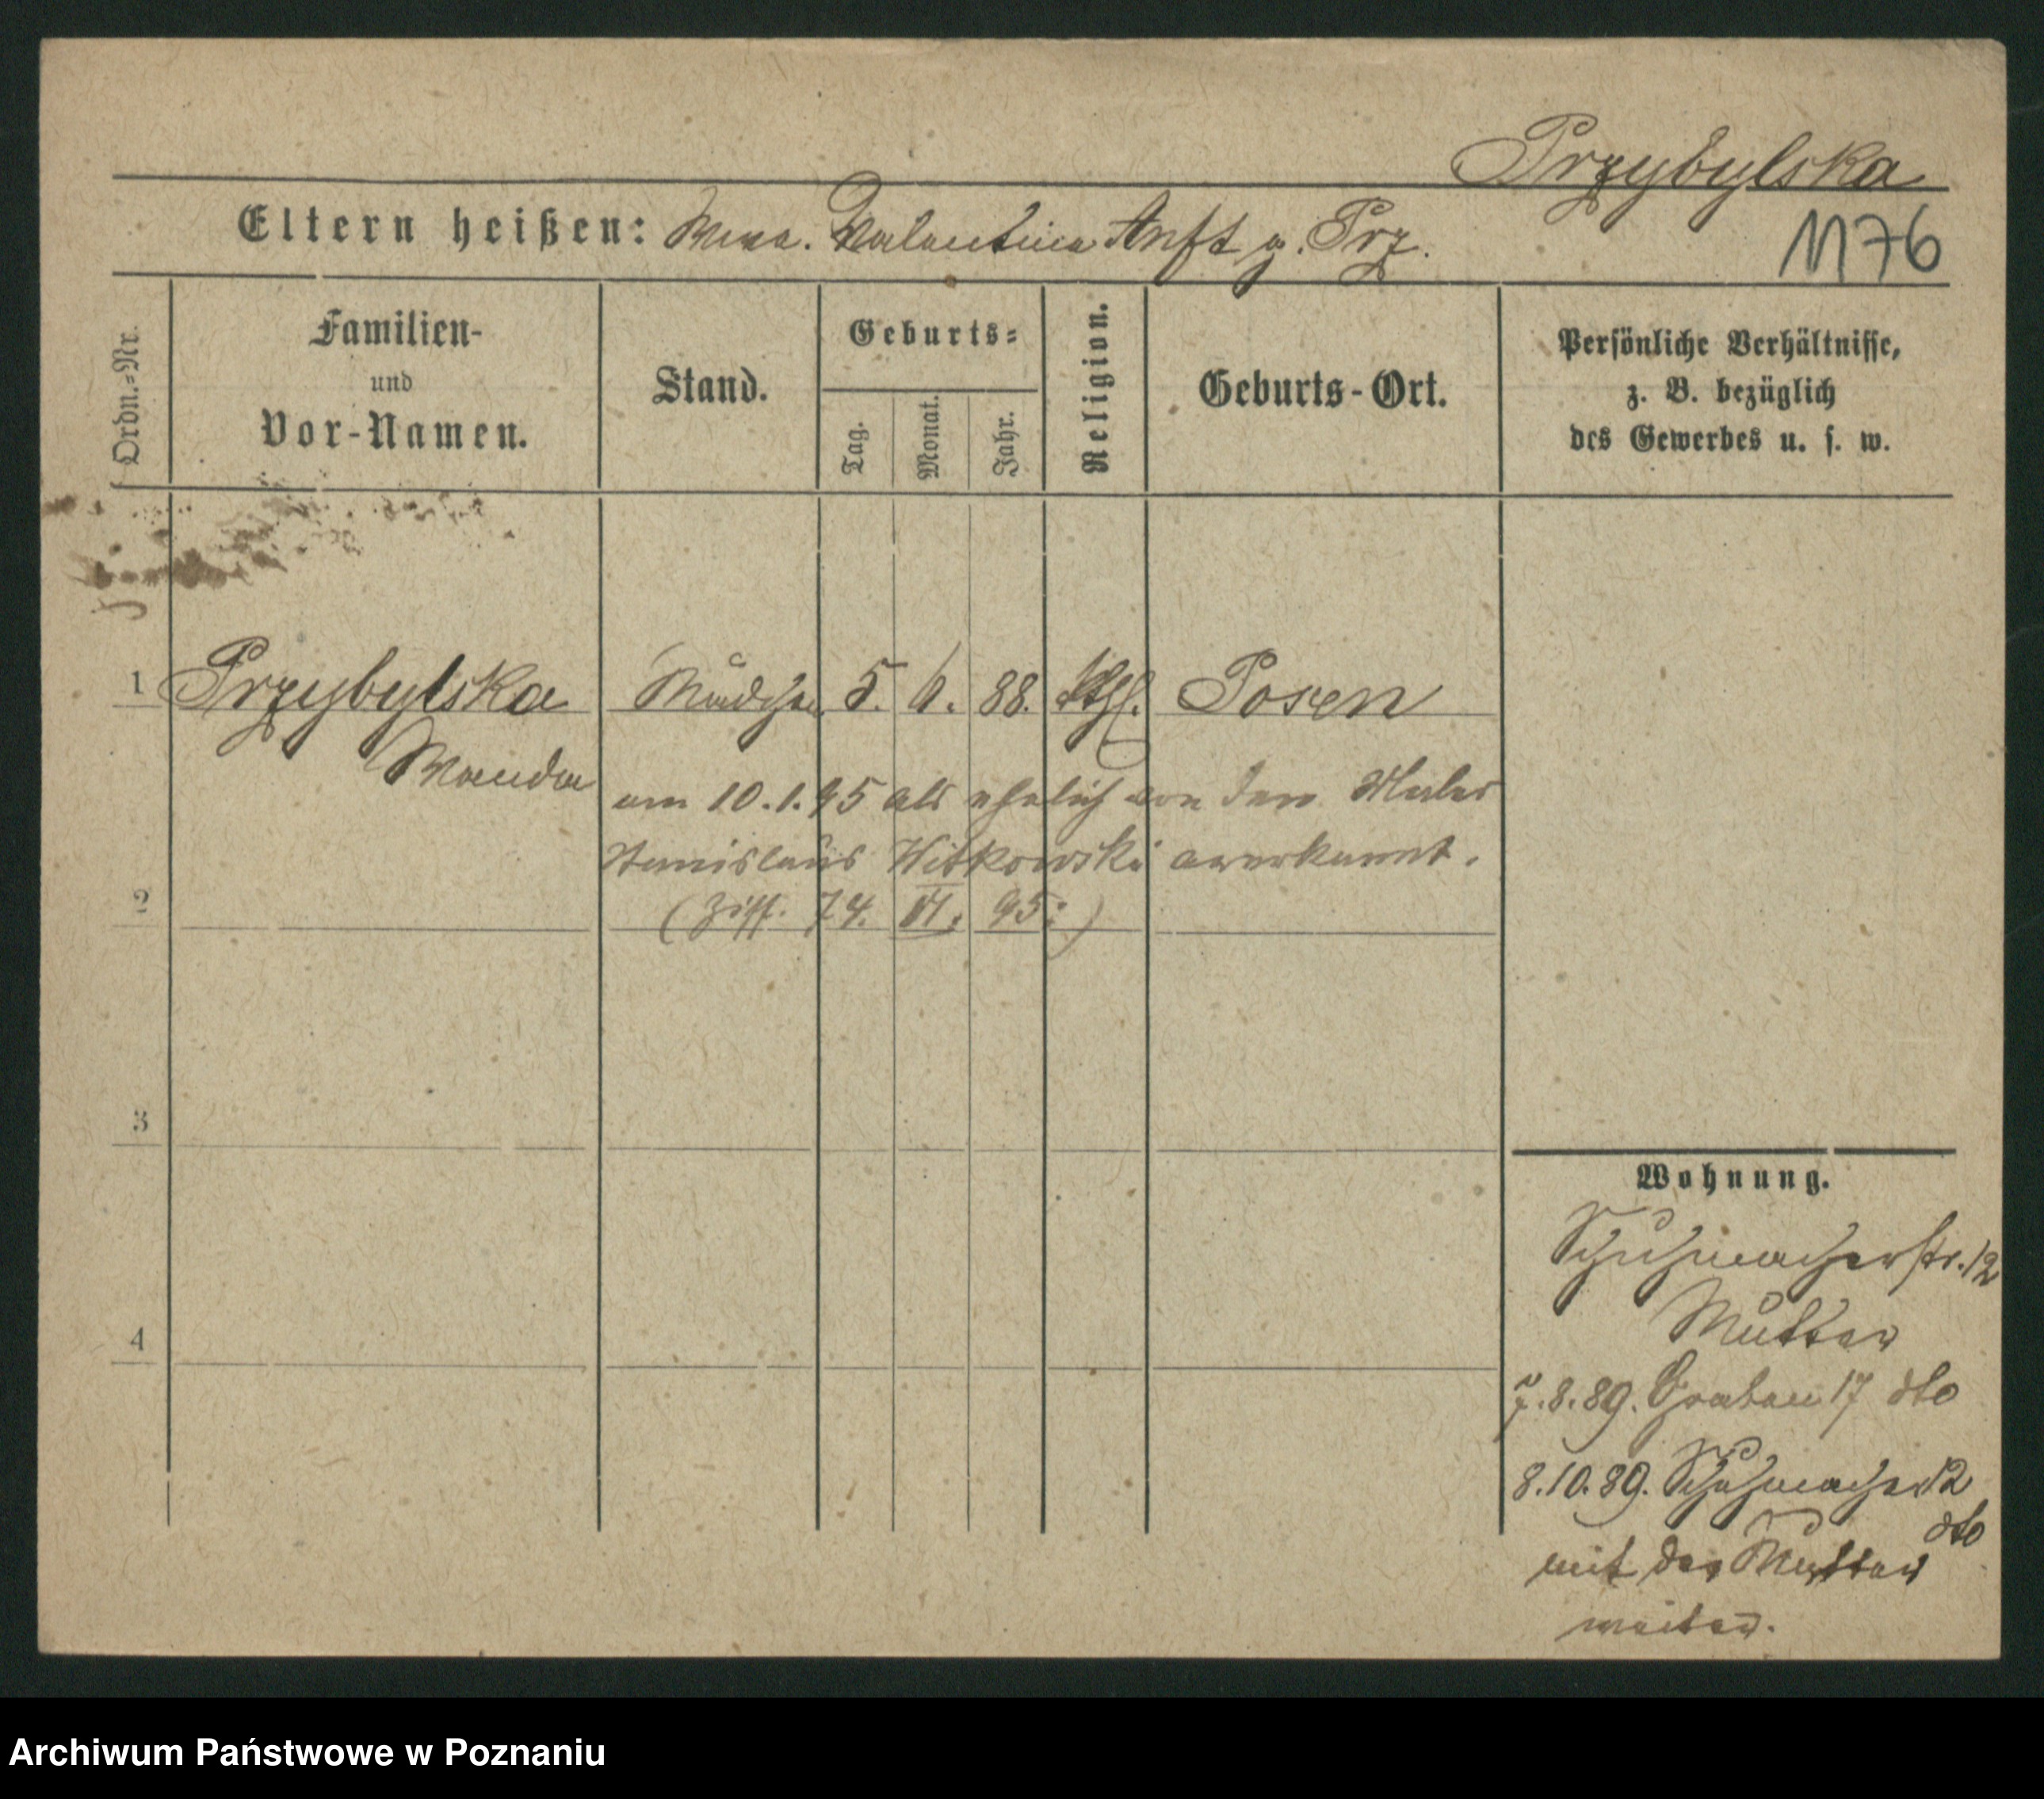 Przybylska
Eltern heißen: Wwe. Valentina Anft g. Prz.
1176
Ordn.-Nr.
Familien-
und
Vor-Namen.
Stand.
Geburts-
Tag.
Monat.
Jahr.
Religion.
Geburts-Ort.
Persönliche Verhältnisse,
z. B. bezüglich
des Gewerbes u. s. w.
1 Przybylska Mädchen 5. 6. 88. kthl. Posen
Wanda
am 10.1.95 als ehelich von dem Maler
Stanislaus Witkowski anerkannt.
2
(Ziff. 74. VI. 95.)
3
4
Wohnung.
Schuhmacherstr. 12
Mutter
7.8.89. Graben 17 dto
8.10.89. Schuhmacher 12
dto
mit der Mutter
weiter.
Archiwum Państwowe w Poznaniu